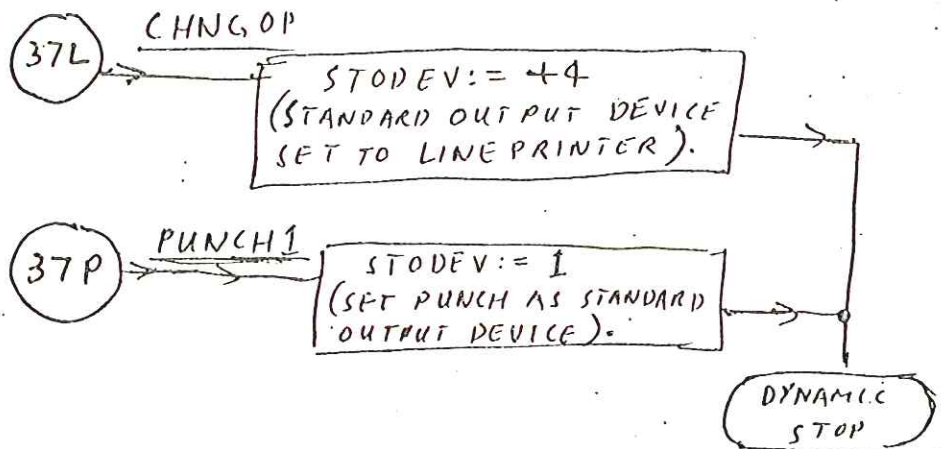 CHNGOP
37L
STODEV:= +4
(STANDARD OUTPUT DEVICE
SET TO LINEPRINTER).
PUNCH1
37P
STODEV:= 1
(SET PUNCH AS STANDARD
OUTPUT DEVICE).
DYNAMIC
STOP